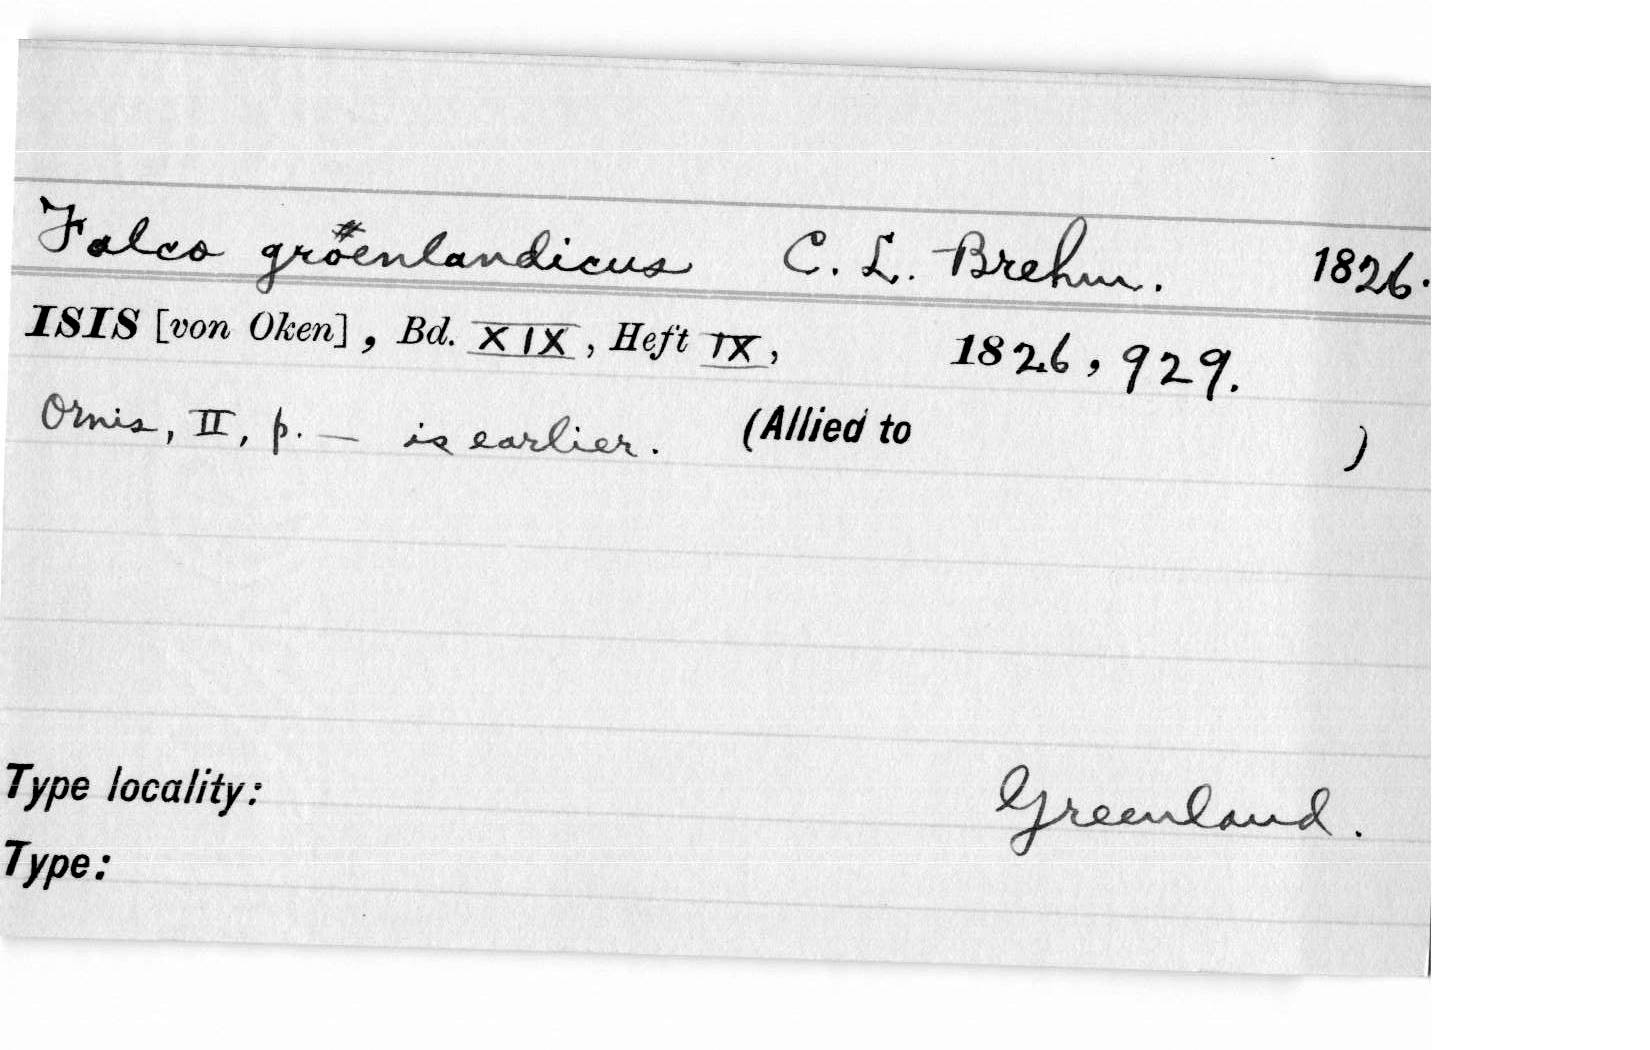 Falco groenlandicus C. L. Brehm. 1826.
ISIS [von Oken], Bd. XIX, Heft IX, 1826, 929.
Ornis, II, p. — is earlier. (Allied to )
Type locality: Greenland.
Type: